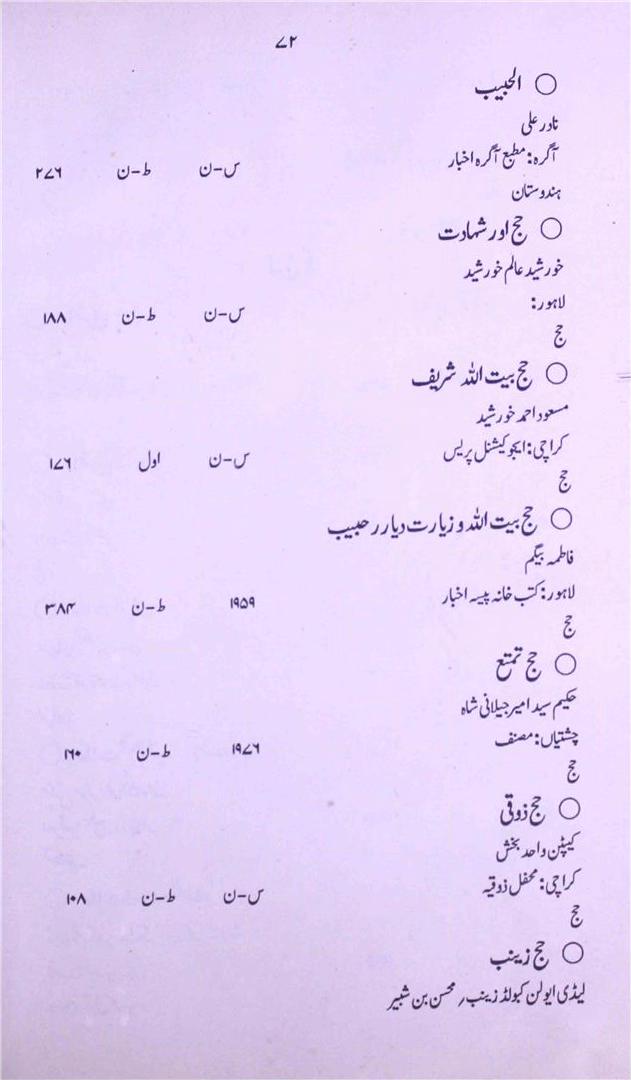 ۷۲
○ الحبیب
نادر علی
آگرہ: مطبع آگرہ اخبار س-ن ط-ن ۲۷۶
ہندوستان
○ حج اور شہادت
خورشید عالم خورشید
لاہور: س-ن ط-ن ۱۸۸
حج
○ حج بیت اللہ شریف
مسعود احمد خورشید
کراچی: ایجوکیشنل پریس س-ن اول ۱۷۶
حج
○ حج بیت اللہ و زیارت دیار ر حبیب
فاطمہ بیگم
لاہور: کتب خانہ پیسہ اخبار ۱۹۵۹ ط-ن ۳۸۴
حج
○ حج تمتع
حکیم سید امیر جیلانی شاہ
چشتیاں: مصنف ۱۹۷۶ ط-ن ۱۶۰
حج
○ حج ذوقی
کیپٹن واحد بخش
کراچی: محفل ذوقیہ س-ن ط-ن ۱۰۸
حج
○ حج زینب
لیڈی ایولن کبولڈ زینب ر محسن بن شبیر